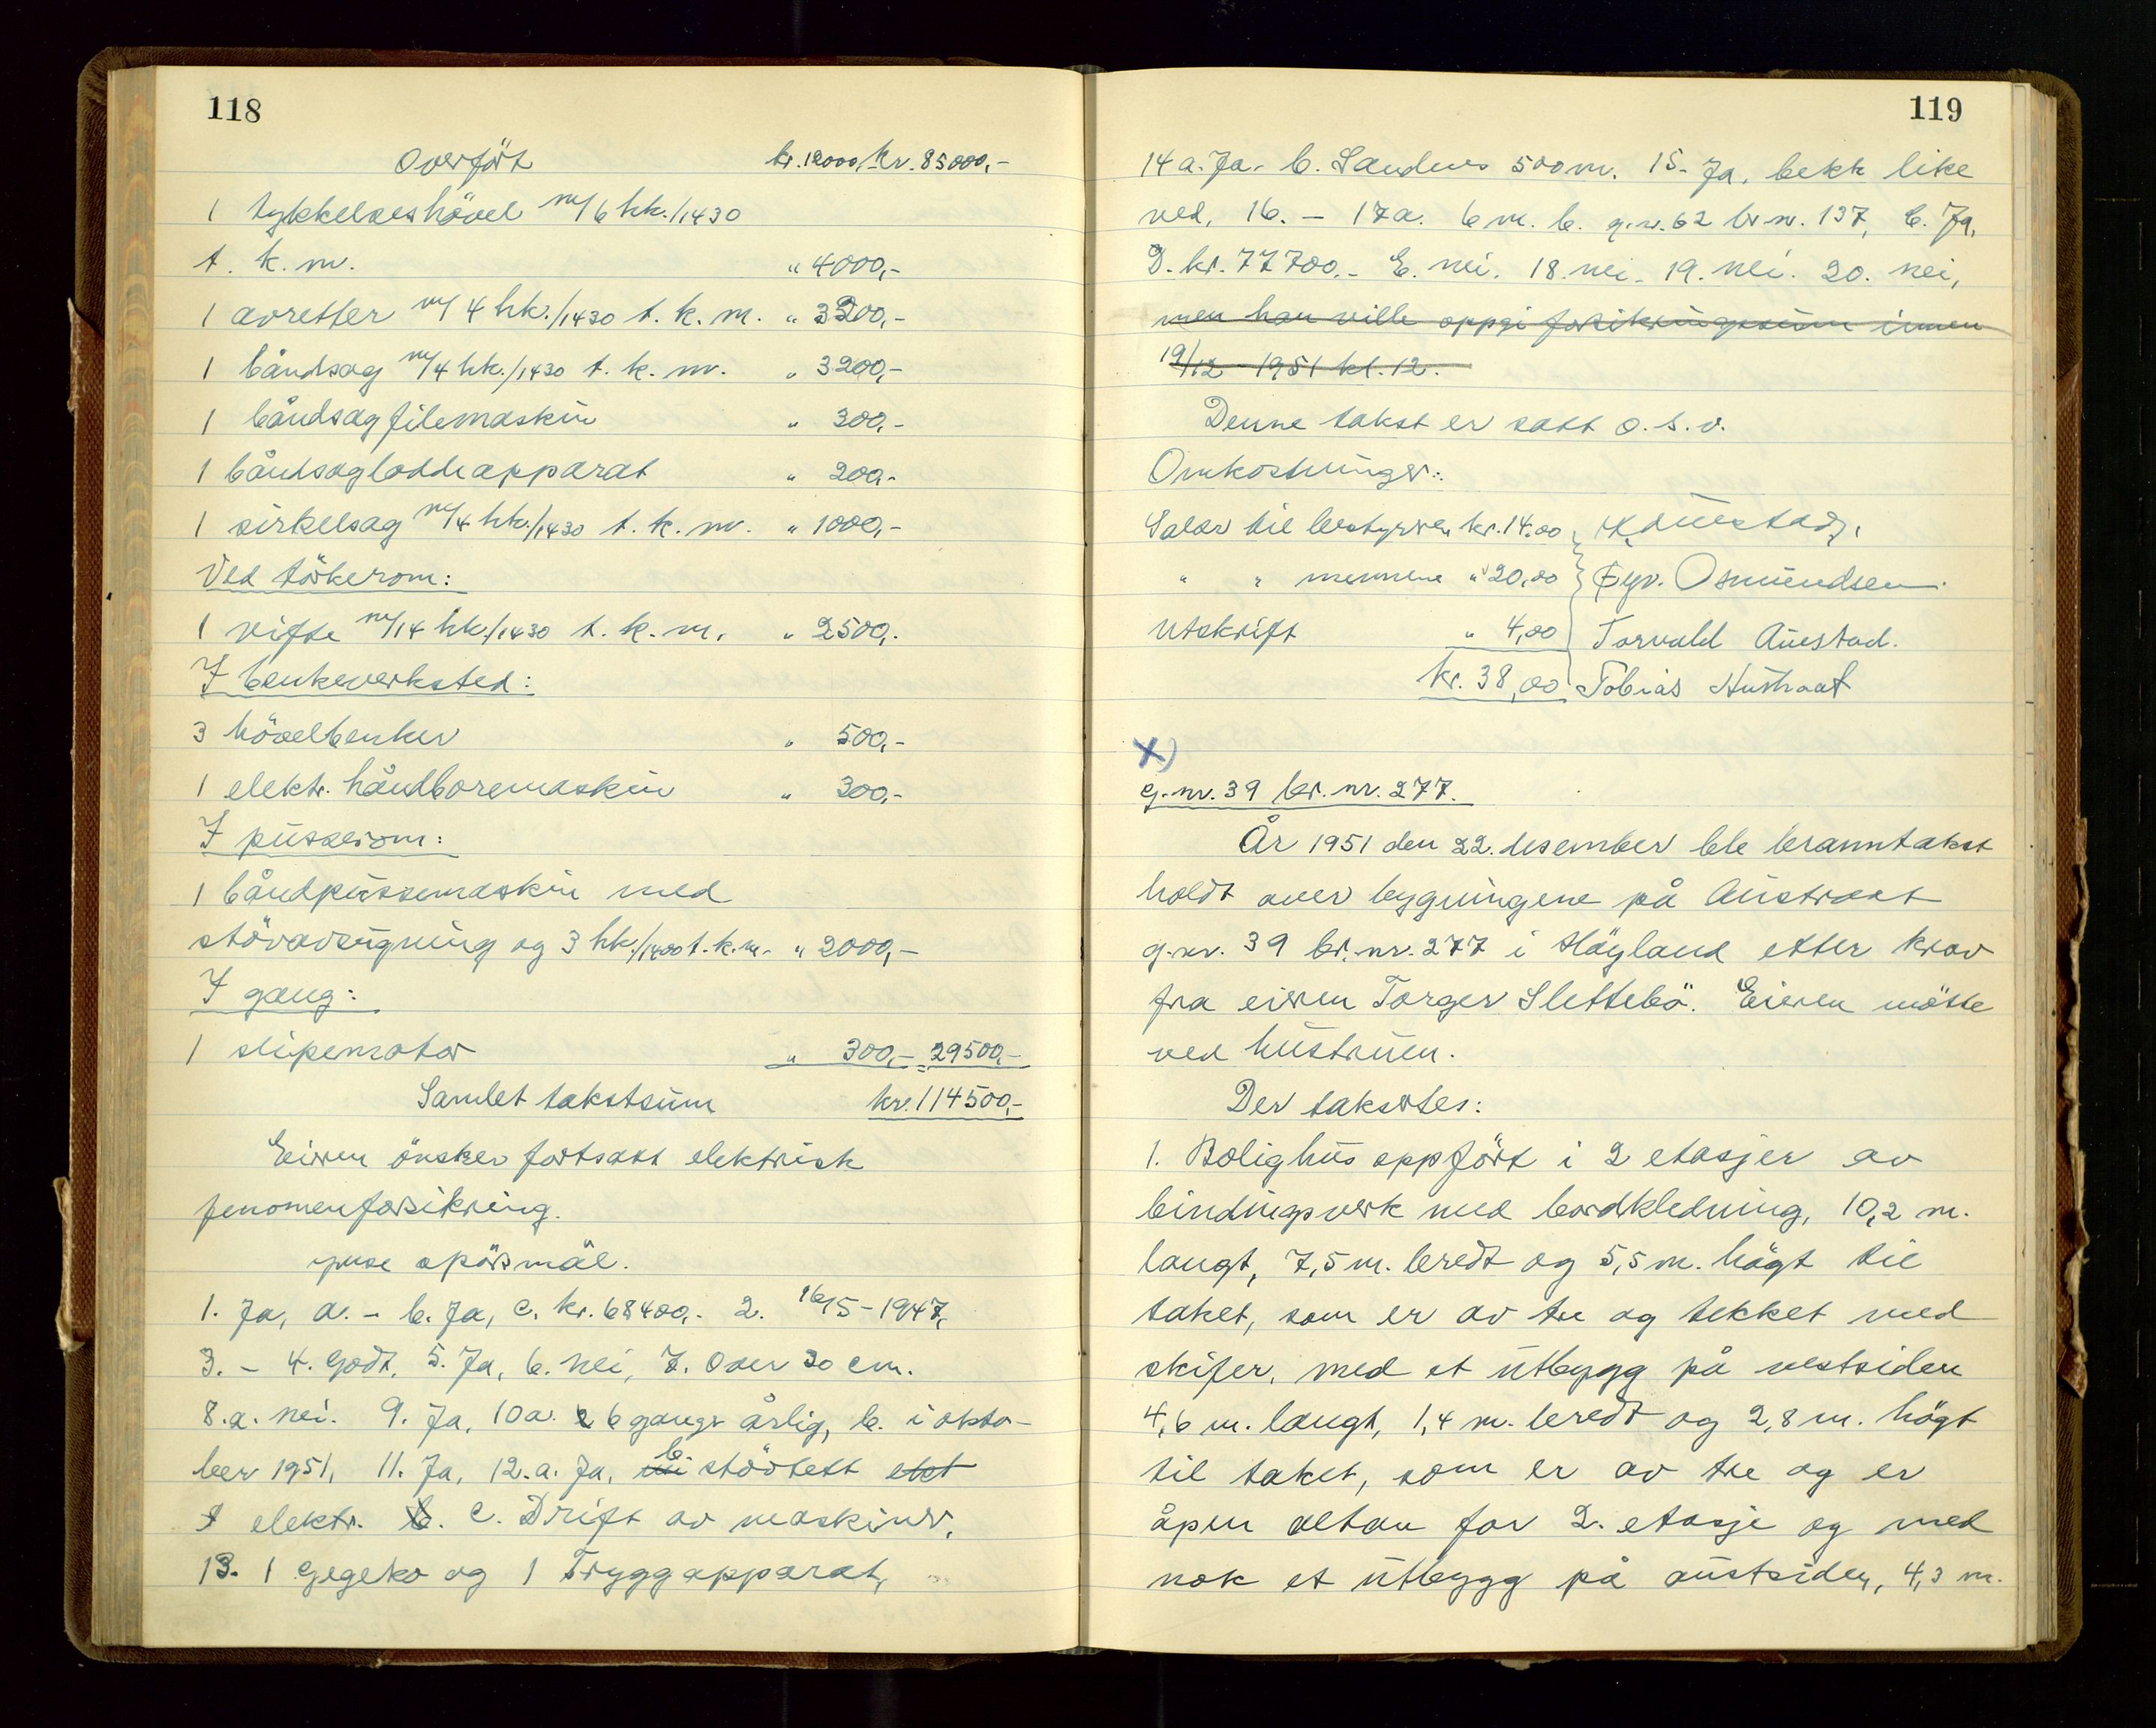 118
Overfört kr. 12000,- kr. 85000,-
1 tykkelseshövel m/6 hk./1430
t. k. m. " 4000,-
1 avretter m/ 4 hk./1430 t. k. m. " 3200,-
1 båndsag m/4 hk./1430 t. k. m. " 3200,-
1 båndsagfilemaskin " 300,-
1 båndsagloddeapparat " 200,-
1 sirkelsag m/4 hk./1430 t. k. m. " 1000,-
Ved törkerom:
1 vifte m/14 hk./1430 t. k. m. " 2500,-
I benkeverksted:
3 hövelbenker " 500,-
1 elektr. håndboremaskin " 300,-
I pusserom:
1 båndpussemaskin med
stövavsugning og 3 hk./1400 t. k. m. " 2000,-
I gang:
1 slipemotor " 300,- = 29500,-
Samlet takstsum kr. 114500,-
Eieren önsker fortsatt elektrisk
fenomenforsikring.
spörsmål.
1. Ja, a. - b. Ja, c. kr. 68400,- 2. 16/5-1947,
3. - 4. Godt, 5. Ja, 6. nei, 7. Over 30 cm.
8.a. nei. 9. Ja, 10a. 6 gangr årlig, b. i okto-
ber 1951, 11. Ja, 12.a. Ja, b. stövtett
elektr. c. Drift av maskiner.
13. 1 Gegeko og 1 Tryggapparat,
119
14 a. Ja. b. Sandnes 500 m. 15. Ja, bekk like
ved, 16. - 17a. 6 m. b. g.nr. 62 br.nr. 137, C. Ja,
D. kr. 77700.- E. nei. 18. nei. 19. nei. 20. nei,
men han ville oppgi forsikringssum innen
19/12 1951 kl. 12.
Denne takst er satt o.s.v.
Omkostninger:
Salær til bestyreren kr. 14.00
" " mennene " 20,00 Eyv. Osmundsen.
Utskrift " 4,00 Torvald Austad.
kr. 38,00 Tobias Austraat
X)
g.nr. 39 br. nr. 277.
År 1951 den 22. desember ble branntakst
holdt over bygningene på Austraat
g.nr. 39 br.nr. 277 i Höyland etter krav
fra eieren Torger Slettebö. Eieren mötte
ved hustruen.
Der takstes:
1. Bolighus oppfört i 2 etasjer av
bindingsverk med bordkledning, 10,2 m.
langt, 7,5 m. bredt og 5,5 m. högt til
taket, som er av tre og tekket med
skifer, med et utbygg på vestsiden
4,6 m. langt, 1,4 m. bredt og 2,8 m. högt
til taket, som er av tre og er
åpen altan for 2. etasje og med
nok et utbygg på austsiden, 4,3 m.